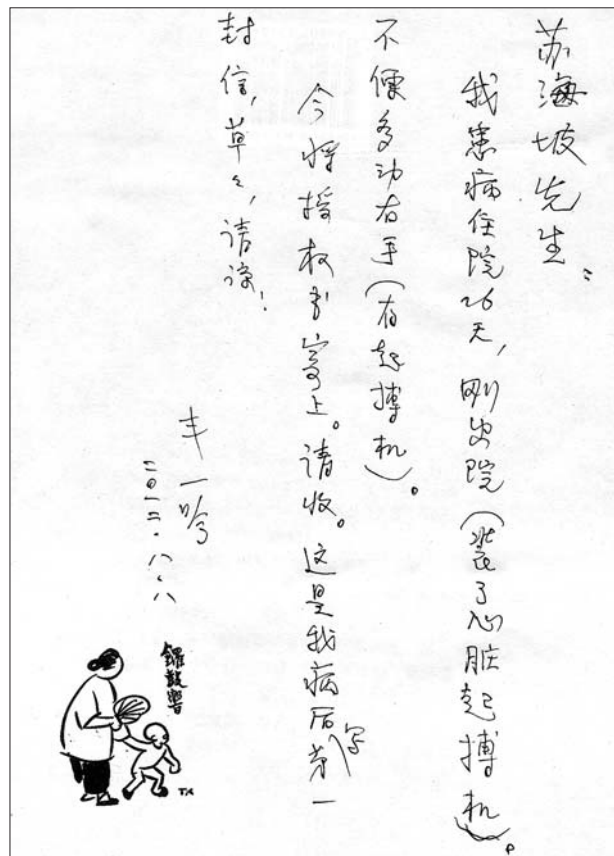 苏海坡先生：
我患病住院26天，刚出院（装了心脏起搏机）。
不便多动右手（有起搏机）。
今将授权书寄上。请收。这是我病后写第一
封信，草々，请谅！
丰一吟
二〇一二.八.八
鑼鼓響
TK